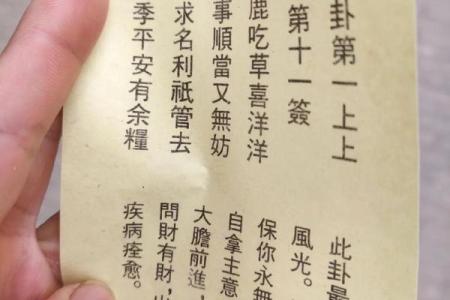 卦第一上上
第十一簽
鹿吃草喜洋洋
事順當又無妨
求名利祇管去
季平安有余糧
此卦最
風光。
保你永無
自拿主意
大膽前進，
問財有財，出
疾病痊愈。